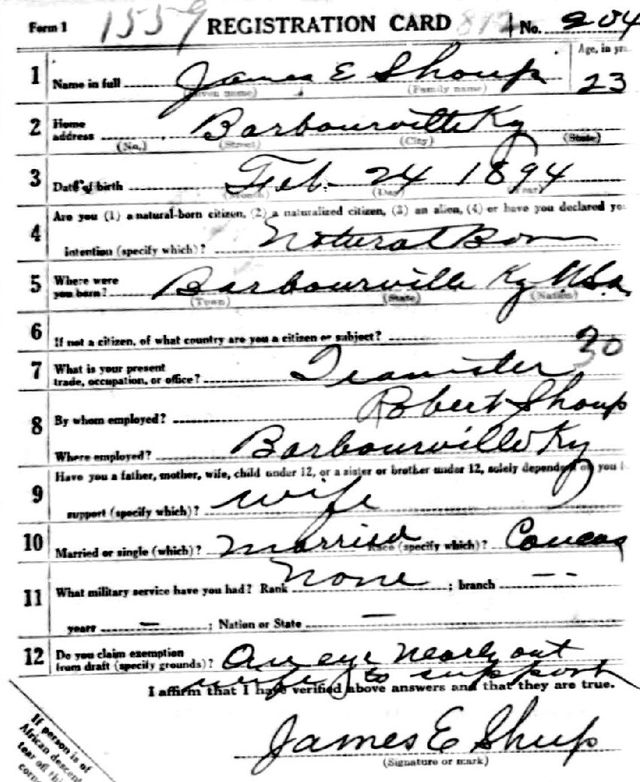 Form 1 1559 REGISTRATION CARD 812 No. 204
1 Name in full James E Shoup Age, in yrs. 23
(Given name) (Family name)
2 Home address Barbourville Ky
(No.) (Street) (City) (State)
3 Date of birth Feb. 24 1894
(Month) (Day) (Year)
4 Are you (1) a natural-born citizen, (2) a naturalized citizen, (3) an alien, (4) or have you declared yo
intention (specify which)? Natural Born
5 Where were you born? Barbourville Ky USa
(Town) (State) (Nation)
6 If not a citizen, of what country are you a citizen or subject?
7 What is your present trade, occupation, or office? Teamster 30
8 By whom employed? Robert Shoup
Where employed? Barbourville Ky
9 Have you a father, mother, wife, child under 12, or a sister or brother under 12, solely dependent on you f
support (specify which)? wife
10 Married or single (which)? Married Race (specify which)? Caucas
11 What military service have you had? Rank None ; branch --
years — ; Nation or State —
12 Do you claim exemption from draft (specify grounds)? An eye nearly out
wife to support
I affirm that I have verified above answers and that they are true.
James E Shup
(Signature or mark)
If person is of
African descent
tear off this
corn